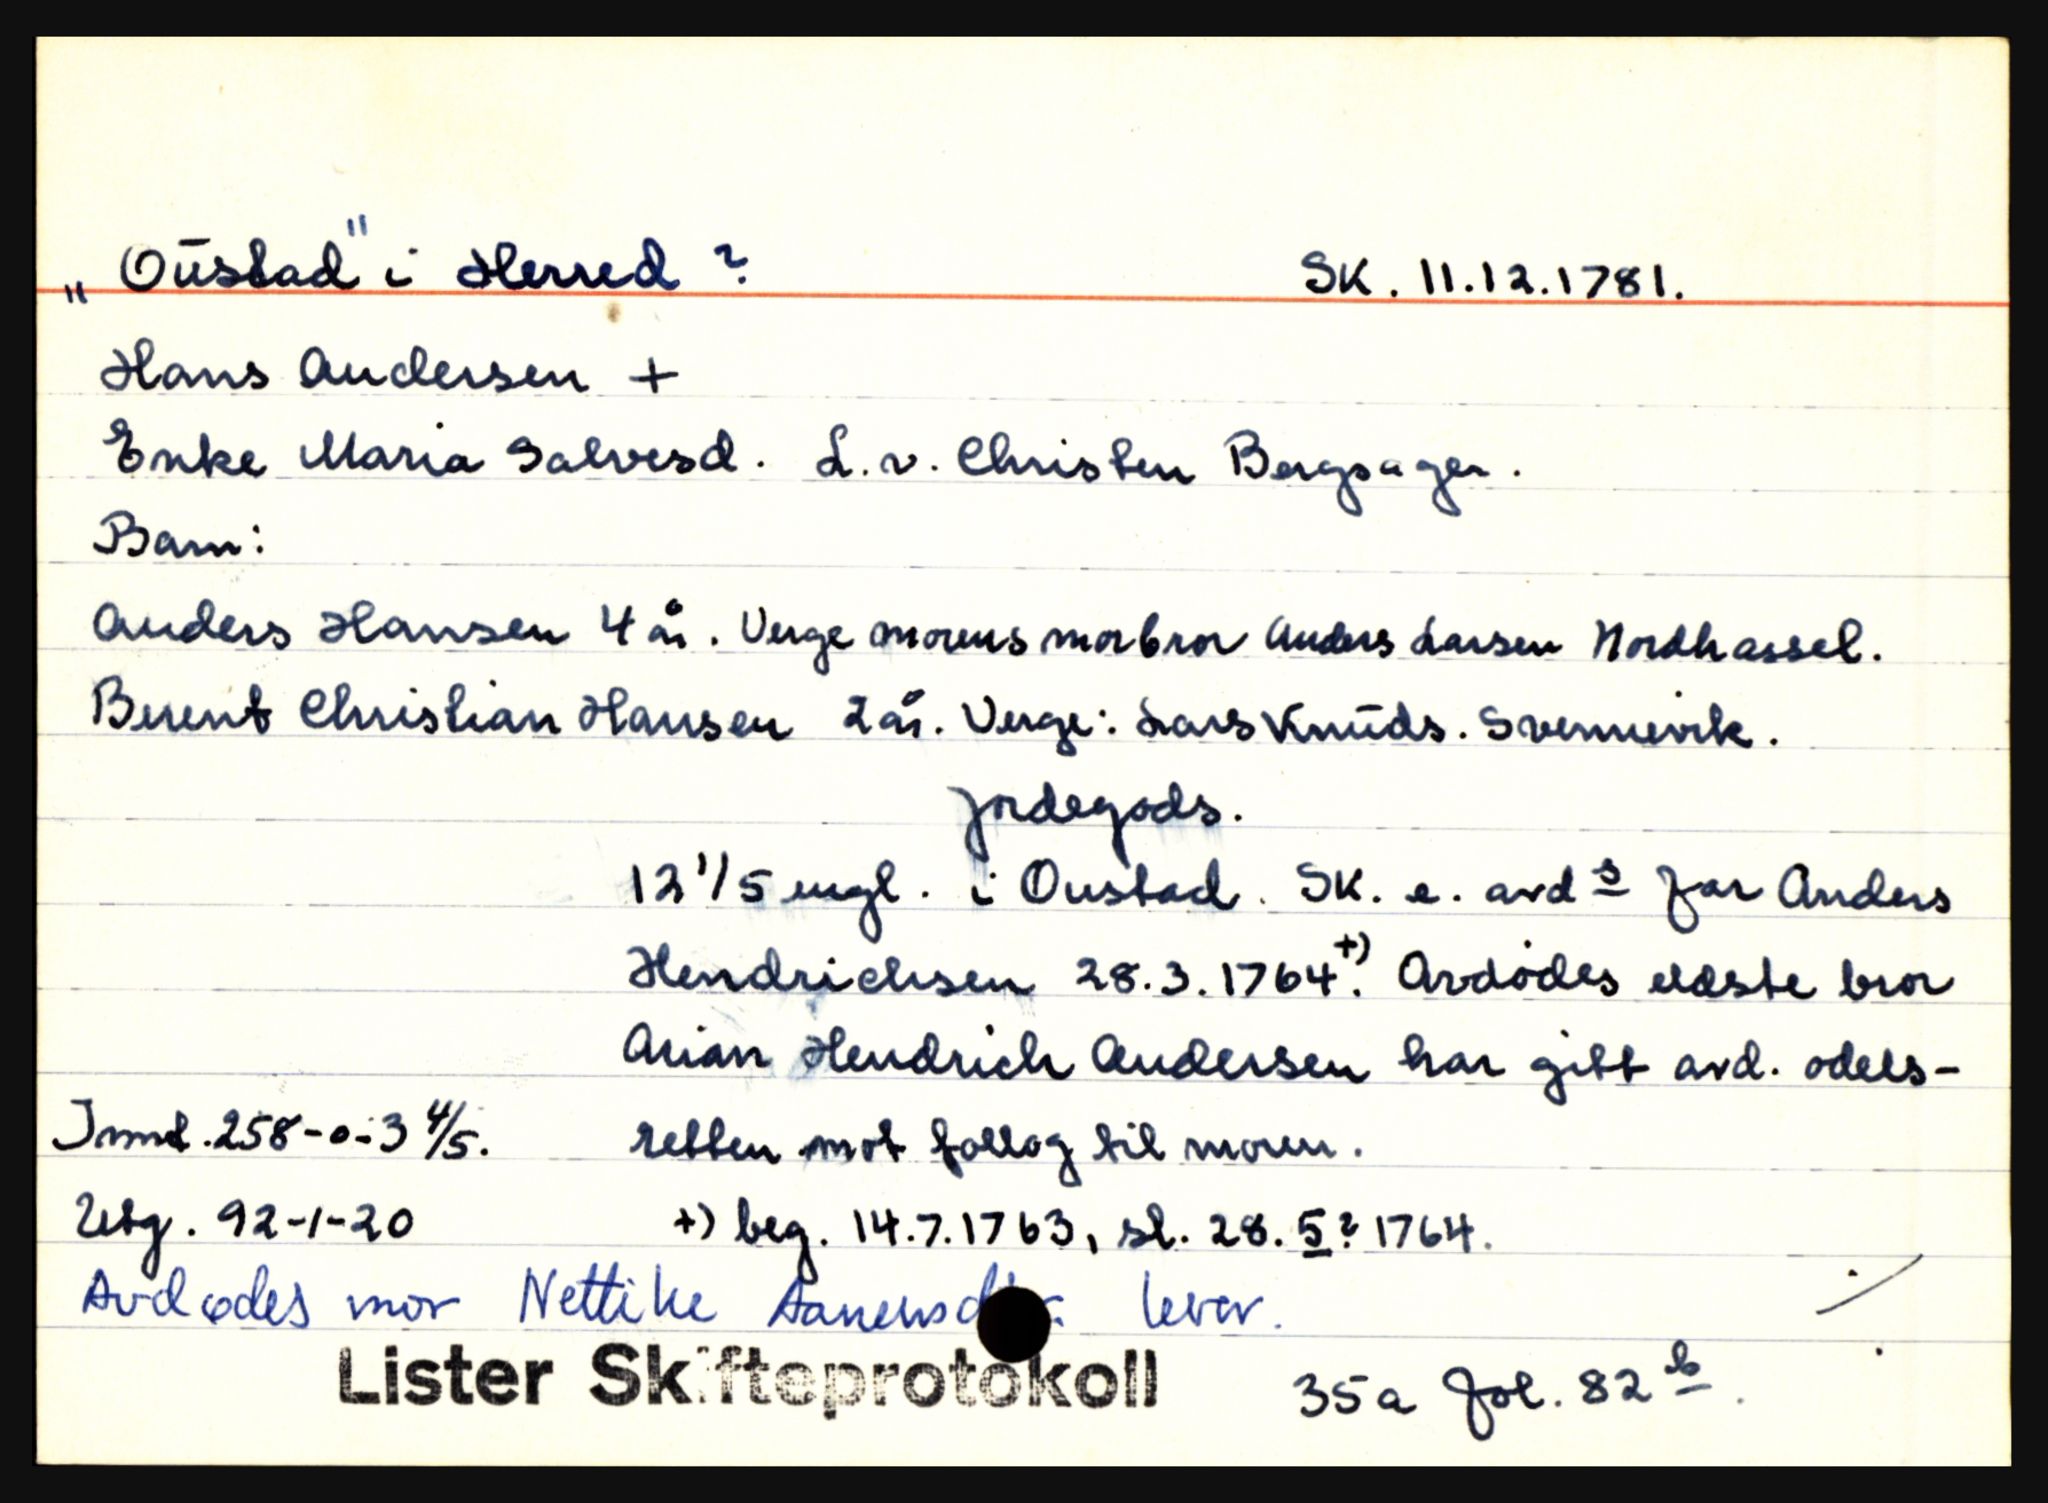 „Oūstad" i Herred ? SK. 11.12.1781.
Hans Andersen +
Enke Maria Salvesd. L.v. Christen Bergsager.
Barn:
Anders Hansen 4 år. Verge morens morbror Anders Larsen Nordhassel.
Berent Christian Hansen 2 år. Verge: Lars Knūds. Svennevik.
Jordegods.
12 1/5 engl. i Oustad. SK. e. avds far Anders
Hendrichsen 28.3.1764+). Avdødes eldste bror
Arian Hendrich Andersen har gitt avd. odels-
retten mot follog til moren.
Innt. 258-0-3 4/5.
Utg. 92-1-20 +) beg. 14.7.1763, sl. 28.5? 1764.
Avdødes mor Nettike lever.
Lister Skifteprotokoll 35a fol. 82b.